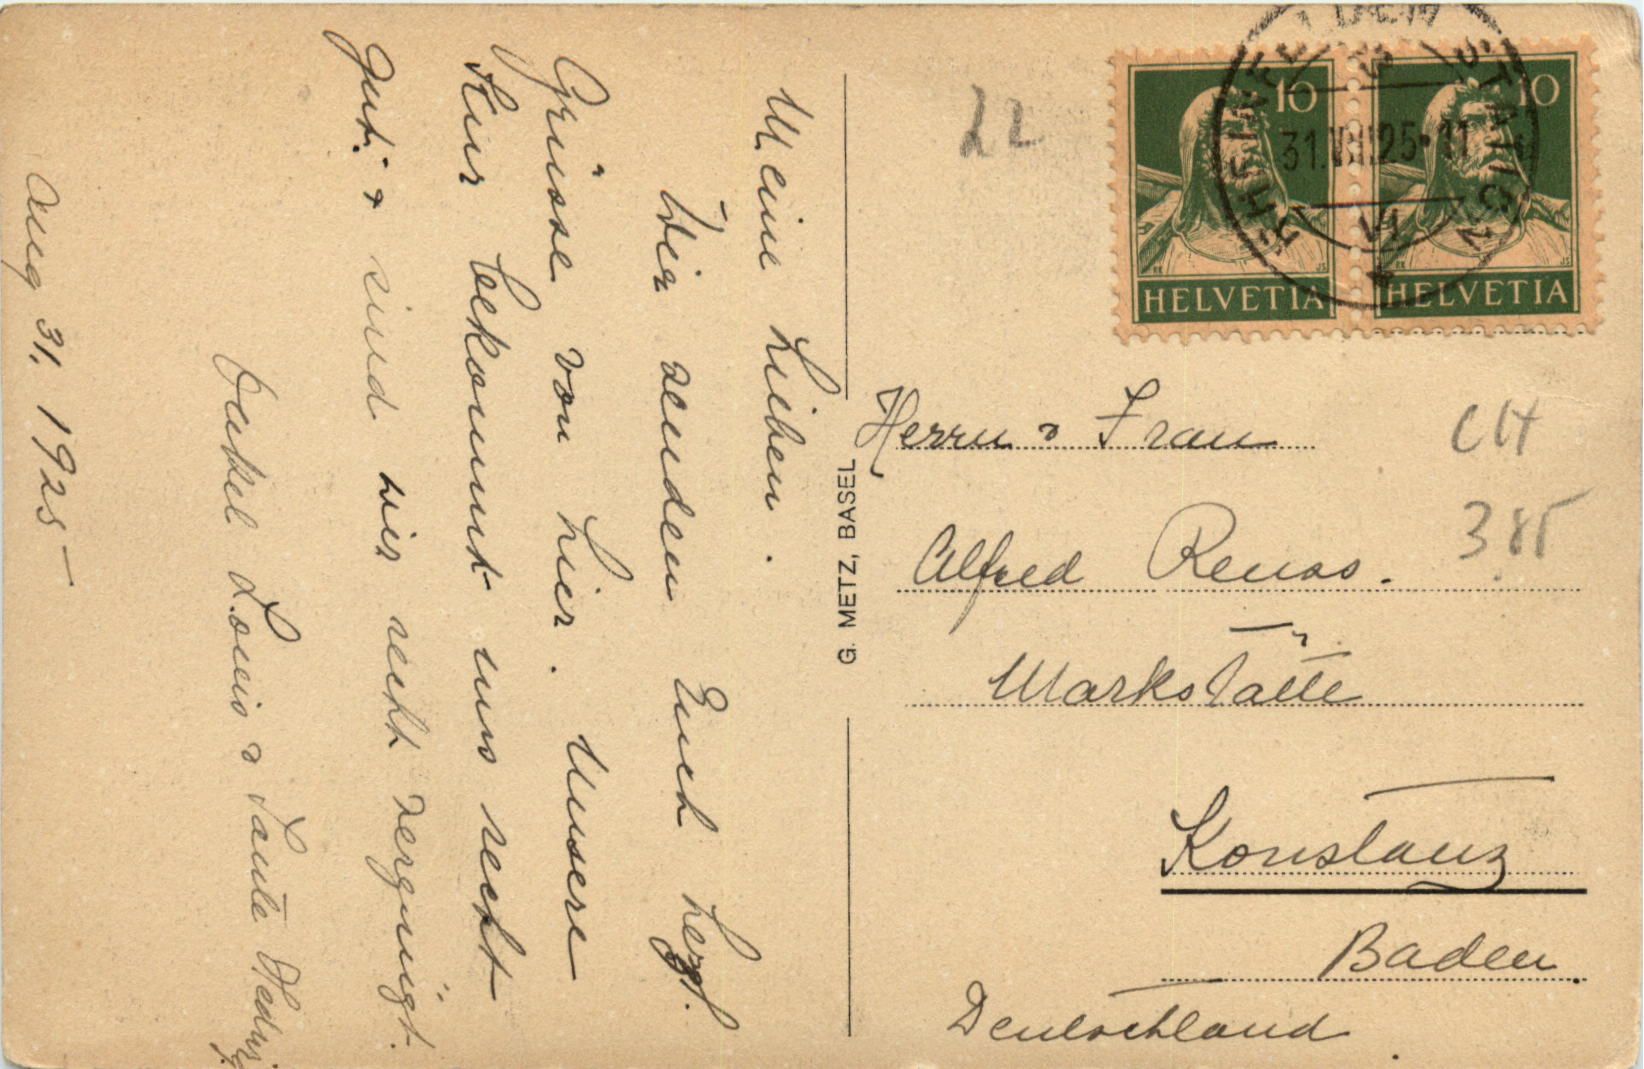 Meine Lieben.
Wir senden Euch herzl.
Grüsse von hier. Unsere
Kur bekommt uns recht
gut. & sind wir recht vergnügt.
Onkel Louis & Tante Hedwig.
Aug 31. 1925
G. METZ, BASEL
22
10 10
RHEINFELDEN STATION
31.VIII.25-11
VI
HELVETIA HELVETIA
Herrn & Frau
CH
385
Alfred Reuss.
Markstätte
Konstanz
Baden.
Deutschland.